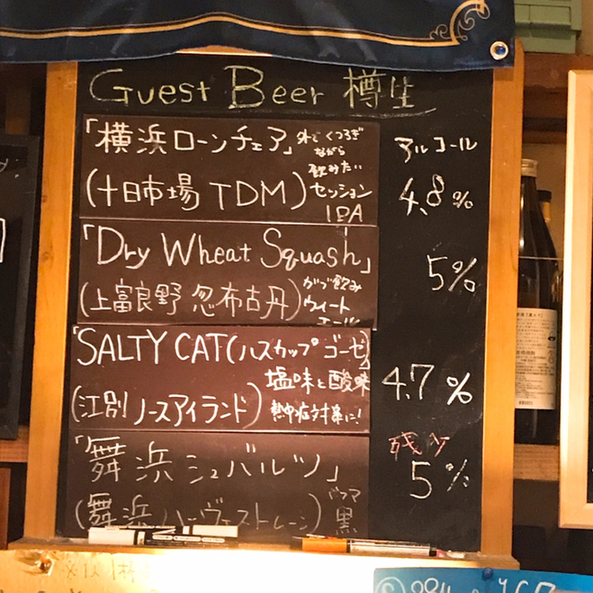 Guest Beer 樽生
「横浜ローンチェア」
外でくつろぎ
ながら
飲みたい
セッション
IPA
アルコール
(十日市場 TDM)
4.8%
「Dry Wheat Squash」
5%
(上富良野 忽布古丹)
がぶ飲み
ウィート
エール
「SALTY CAT(ハスカップゴーゼ」
塩味と酸味
4.7%
(江別 ノースアイランド)
熱中症対策に!
「舞浜シュバルツ」
残り
5%
(舞浜ハーヴェストムーン)
黒